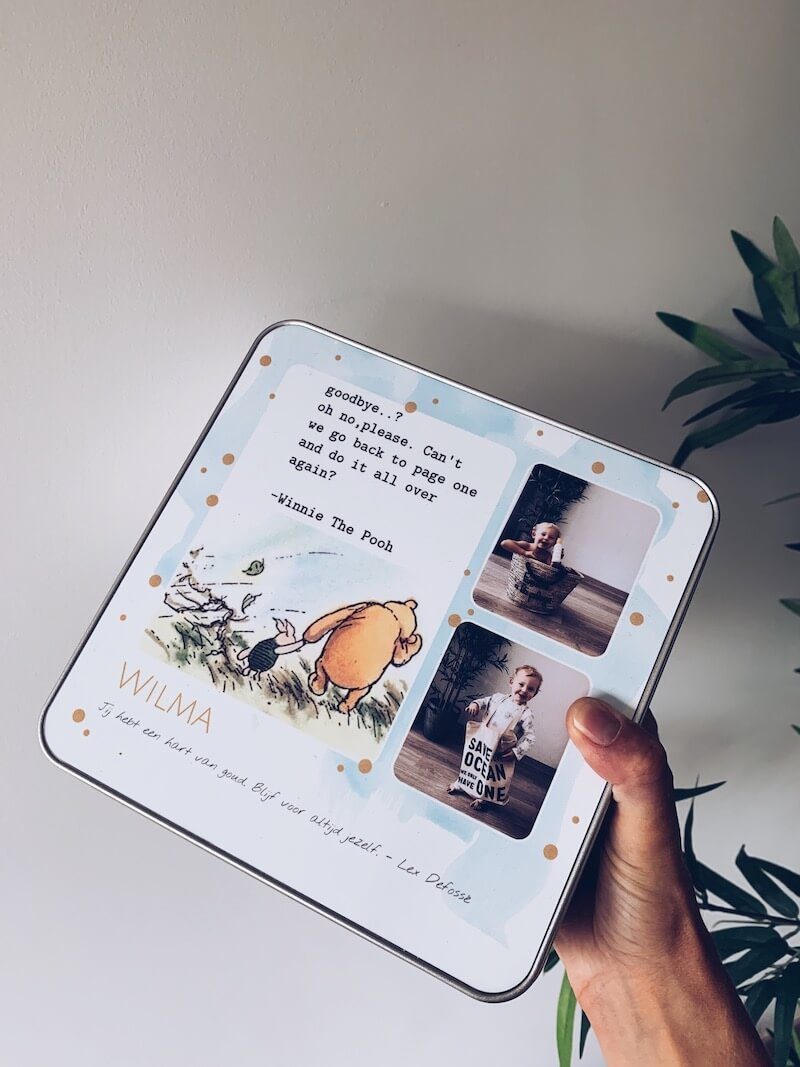 goodbye..?
oh no,please. Can't
we go back to page one
and do it all over
again?
-Winnie The Pooh
WILMA
Jij hebt een hart van goud. Blijf voor altijd jezelf. - Lex Defossé
SAVE
OCEAN
WE ONLY
HAVE ONE